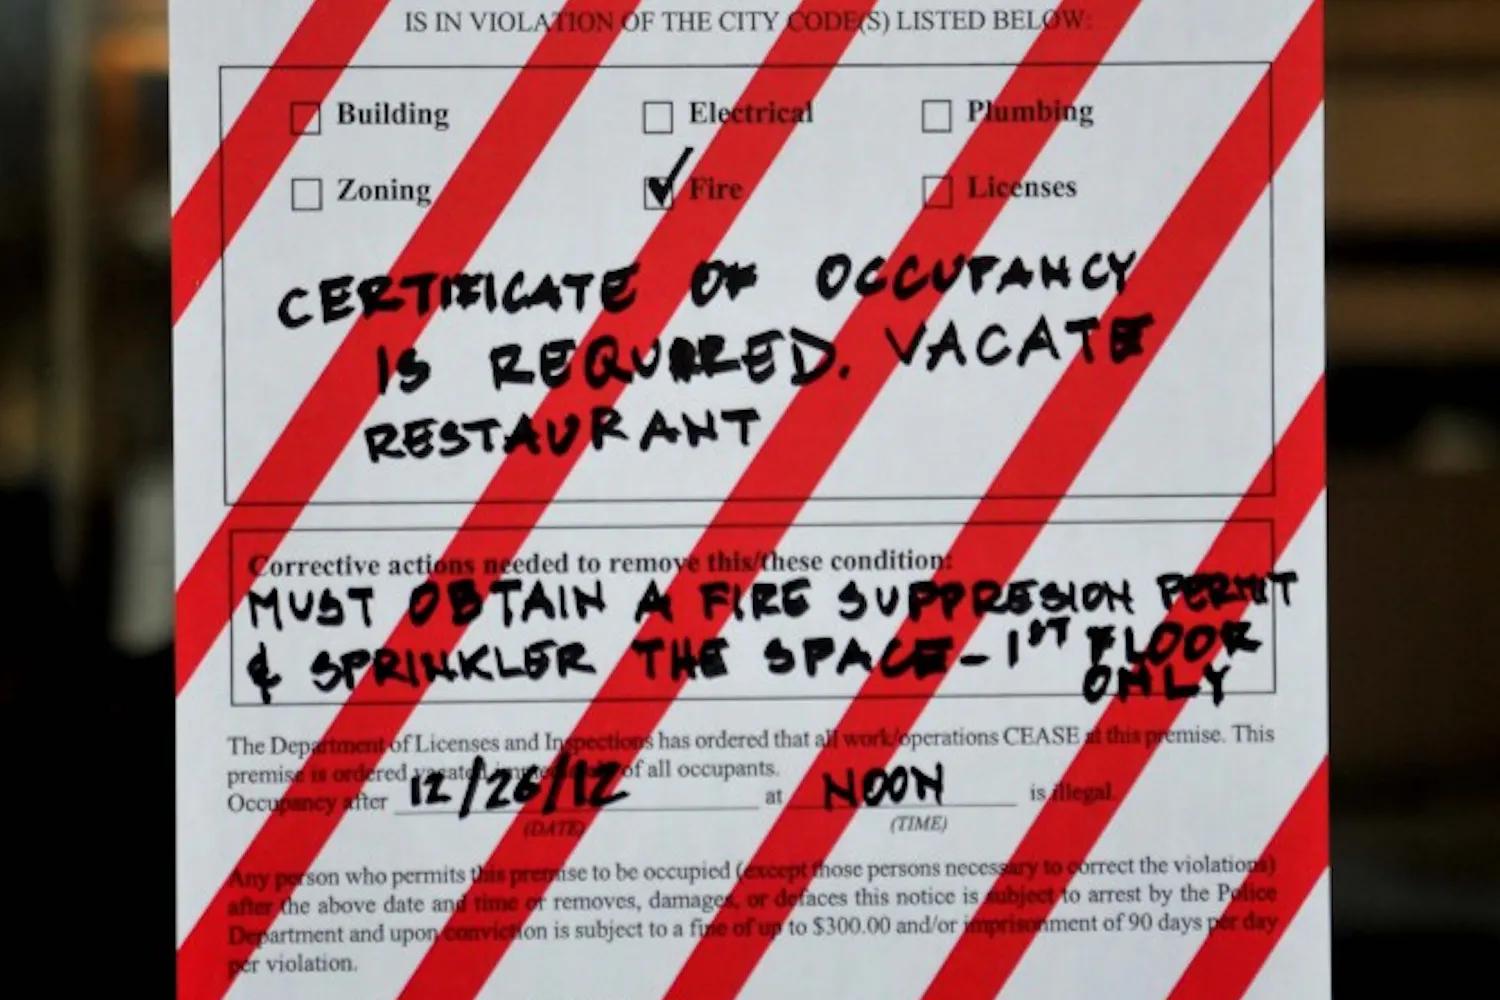 IS IN VIOLATION OF THE CITY CODE(S) LISTED BELOW:
Building Electrical Plumbing
Zoning Fire Licenses
CERTIFICATE OF OCCUPANCY
IS REQUIRED. VACATE
RESTAURANT
Corrective actions needed to remove this/these condition:
MUST OBTAIN A FIRE SUPPRESION PERMIT
& SPRINKLER THE SPACE - 1ST FLOOR
ONLY
The Department of Licenses and Inspections has ordered that all work/operations CEASE at this premise. This
premise is ordered vacated immediately of all occupants.
Occupancy after 12/26/12 at NOON is illegal.
(DATE) (TIME)
Any person who permits this premise to be occupied (except those persons necessary to correct the violations)
after the above date and time or removes, damages, or defaces this notice is subject to arrest by the Police
Department and upon conviction is subject to a fine of up to $300.00 and/or imprisonment of 90 days per day
per violation.